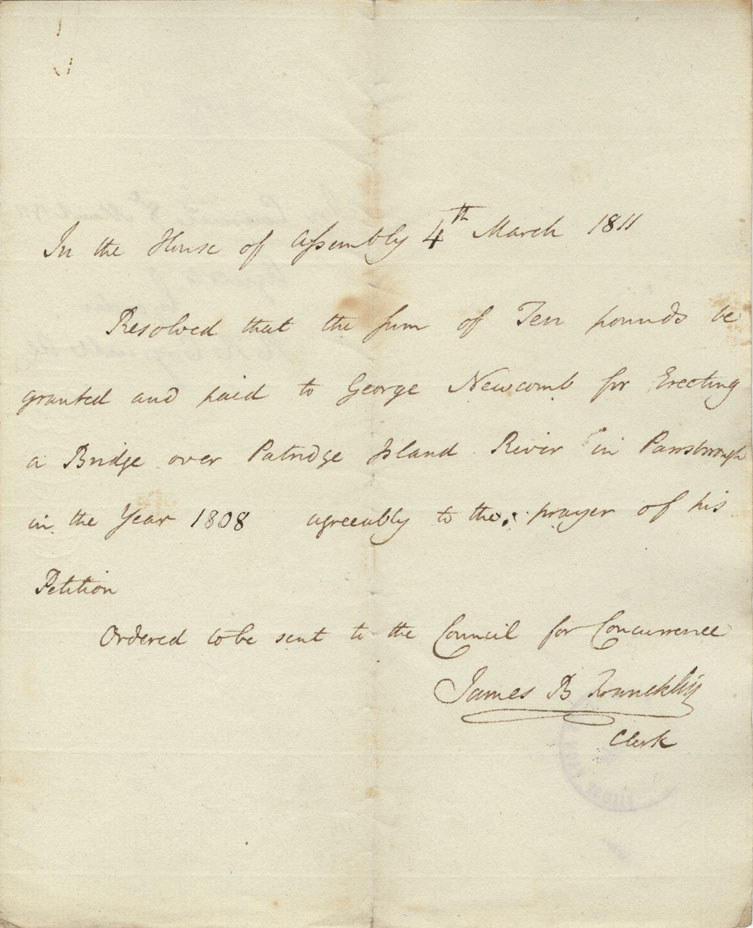 In the House of Assembly 4th March 1811
Resolved that the sum of Ten pounds be
granted and paid to George Newcomb for Erecting
a Bridge over Patridge Island River in Parrsbrough
in the Year 1808 agreeably to the prayer of his
Petition
Ordered to be sent to the Council for Concurrence
James B Francklin
Clerk